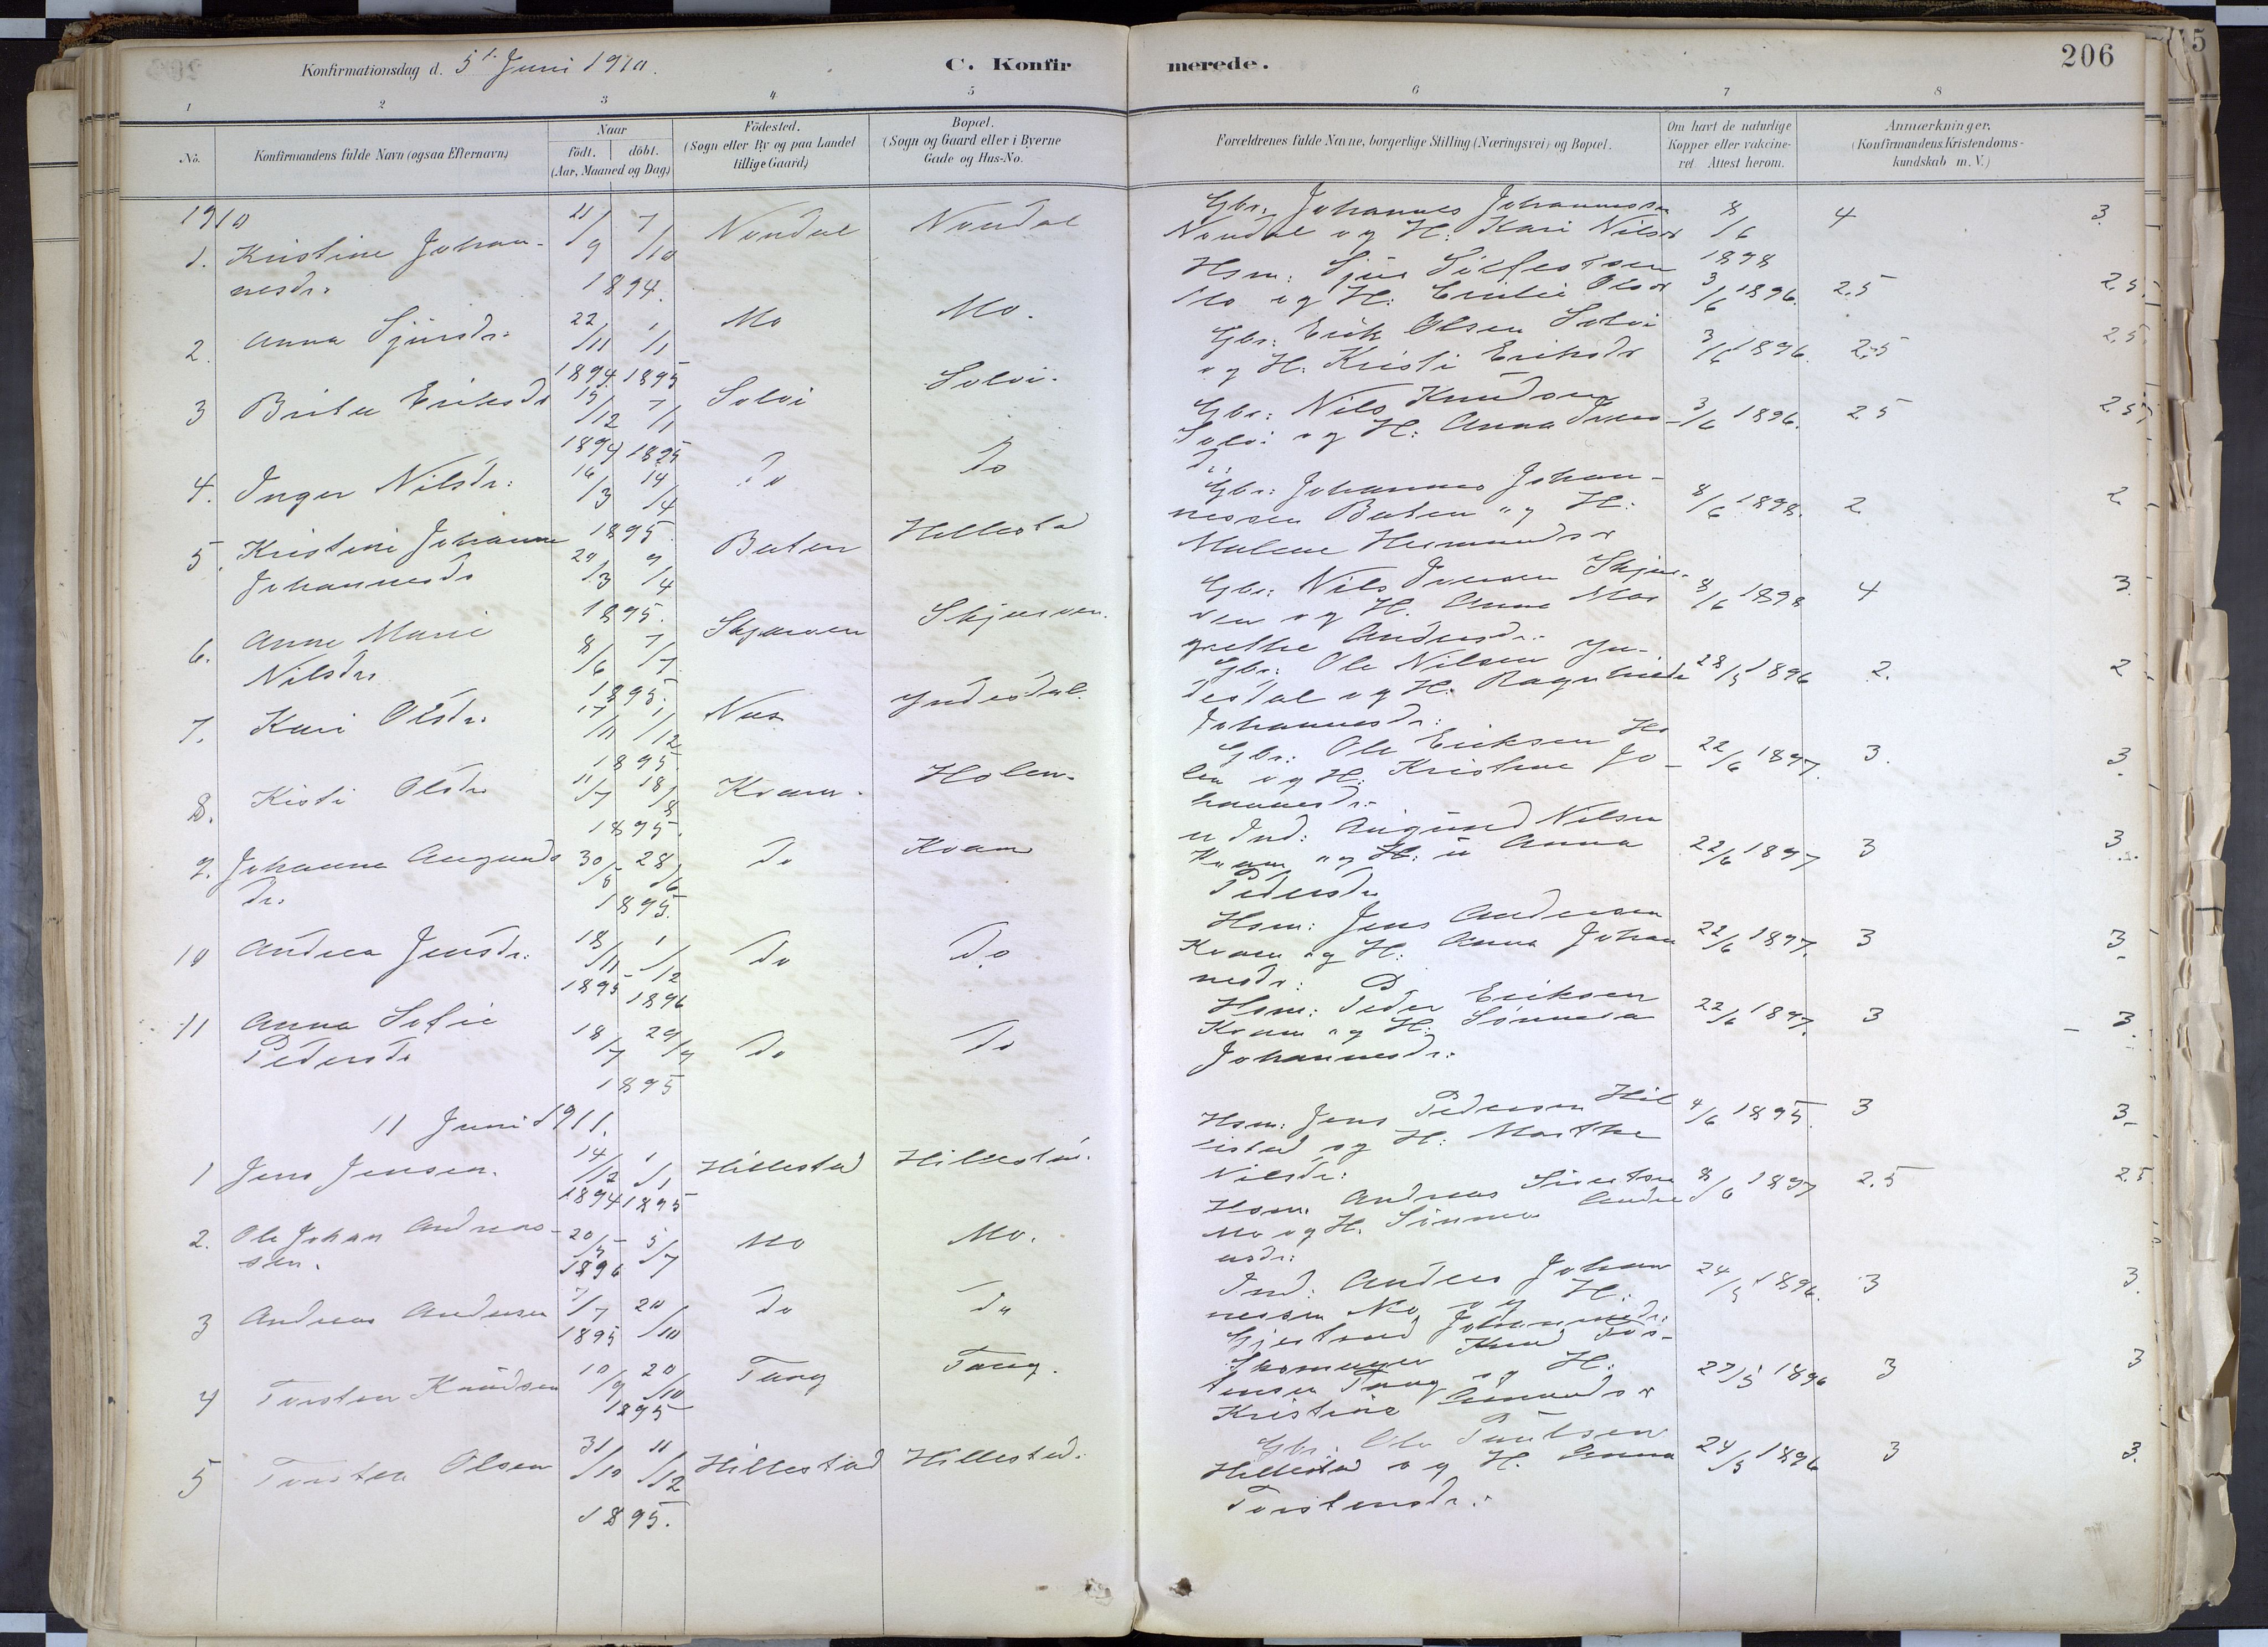 Konfirmationsdag d. 5te Juni 1910.
C. Konfirmerede.
206
1 2 3 4 5 6 7 8
No.
Konfirmandens fulde Navn (ogsaa Efternavn)
Naar
födt. döbt.
(Aar, Maaned og Dag)
Födested.
(Sogn eller By og paa Landet
tillige Gaard)
Bopæl.
(Sogn og Gaard eller i Byerne
Gade og Hus-No.
Forældrenes fulde Navne, borgerlige Stilling (Næringsvei) og Bopæl.
Om havt de naturlige
Kopper eller vakcine-
ret. Attest herom.
Anmærkninger.
(Konfirmandens Kristendoms-
kundskab m. V.)
1910
1. Kristine Johan-
nesdr.
21/9 7/10
1894.
Nondal Nondal
Gbr. Johannes Johannessen
Nondal og H: Kari Nilsdr
8/6
1898
4 3
2. Anna Sjursdr.
22/11 1/1
1894 1895
Mo Mo.
Hsm: Sjur
Mo og H: Olsdr
3/6 1896. 2.5 2.5
3 Brita Eriksdr
15/12 7/1
1894 1895
Solvi Solvi.
Gbr: Erik Olsen Solvi
og H: Kristi Eriksdr
3/6 1896. 2.5 2.5
4. Inger Nilsdr:
16/3 14/4
1895.
Do Do
Gbr: Nils Knudsen
Solvi og H: Anna
dr.
3/6 1896. 2.5 2.5
5. Kristine Johanne
Johannesdr
29/3 9/4
1895.
Hillestad
Gbr: Johannes Johan-
nessen og H:
Malene
8/6 1898. 2 2
6. Anne Marie
Nilsdr
8/6 7/7
1895.
Skjerven Skjerven.
Gbr: Nils Iversen Skjer-
ven og H. Anna Mar
grethe Andersdr.
8/6 1898 4 3.
7. Kari Olsdr.
17/11 1/12
1895.
Nes Yndesdal.
Gbr: Ole Nilsen Yn-
desdal og H. Ragnhild
Johannesdr:
28/5 1896 2. 2
8. Kisti Olsdr
11/7 18/8
1895.
Kvam. Holen.
Gbr: Ole Eriksen Ho
len og H: Kristine Jo-
hannesdr.
22/6 1897. 3. 3
9. Johanna Augunds
dr.
30/5 28/6
1895.
do Kvam
u Ind: Augund Nilsen
Kvam og H: u Anna
Pedersdr
22/6 1897 3 3.
10 Andrea Jensdr.
18/11 1/12
1895 1896
Do Do
Hsm: Jens Andersen
Kvam og H: Anna Johan
nesdr:
22/6 1897. 3 3
11 Anna Sofie
Pedersdr
18/7 29/9
1895
Do Do
Hsm: Peder Eriksen
Kvam og H:
Johannesdr.
22/6 1897. 3 3.
11 Juni 1911.
1 Jens Jensen.
14/12 1/1
1894 1895
Hillestad Hillestad.
Hsm: Jens Pedersen Hil
lestad og H: Marthe
Nilsdr:
4/6 1895. 3 3
2. Ole Johan Andreas-
sen.
20/5 5/7
1896
Mo Mo.
Hsm. Andreas Sivertsen
Mo og H. Sønneva Andre
asdr:
8/6 1897 2.5 2.5
3 Andreas Andersen
7/7 20/10
1895
Do Do
Ind: Anders Johan
nessen Mo og H:
Gjertrud Johannesdr:
24/5 1896. 3 3.
4 Torsten Knudsen
10/9 20/10
1895
Taug Taug.
Skomager Knud Tos-
tensen Taug og H:
Kristine Amundsdr
27/5 1896 3 3
5 Torsten Olsen
31/10 11/12
1895.
Hillestad Hillestad.
Gbr: Ole Paulsen
Hillestad og H. Anna
Torstensdr.
24/5 1896 3 3.